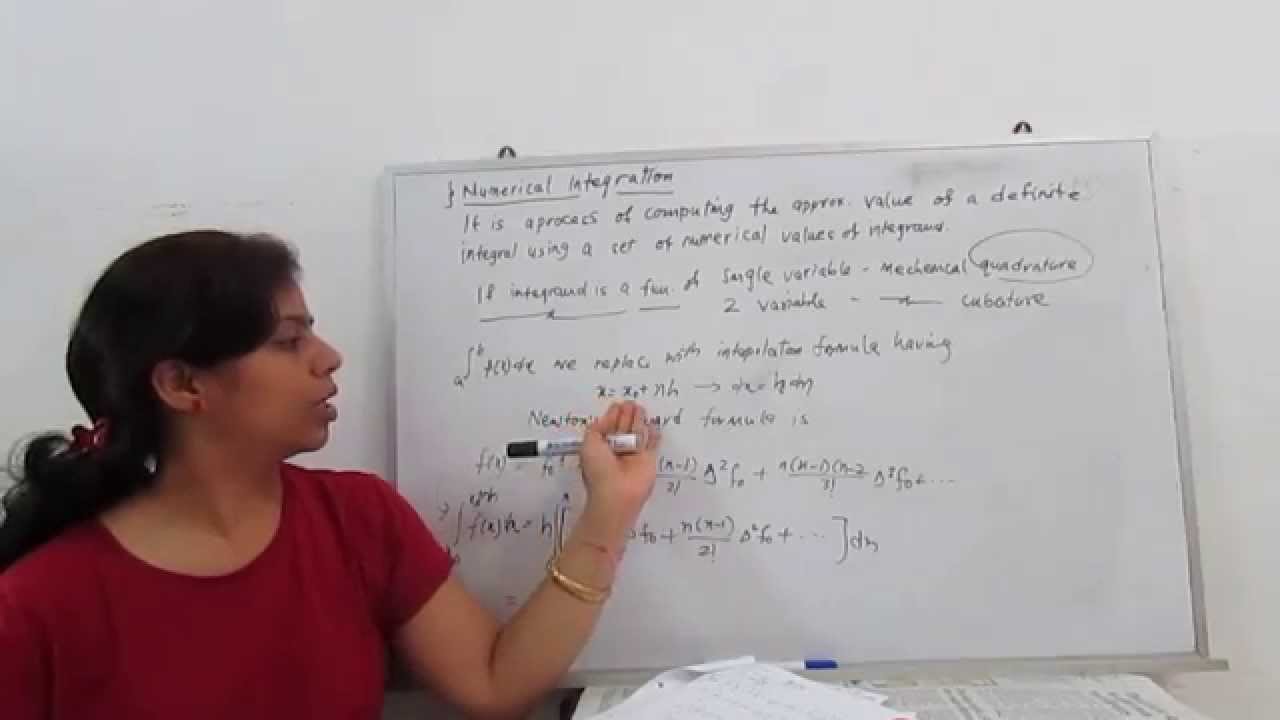 } Numerical Integration
It is a process of computing the approx. value of a definite
integral using a set of numerical values of integrand.
If integrand is a fun. of single variable - Mechemical quadrature
2 variable - —〃— cubature
∫ₐᵇ f(x)dx we replace with interpolation formula having
x = x₀ + nh → dx = h dn
formula is
f(x) = f₀ + (n-1)/2! Δ²f₀ + n(n-1)(n-2/3! Δ³f₀ + ...
∫ f(x)dx = h[∫ f₀ + n(n-1)/2! Δ²f₀ + ... ]dn
=